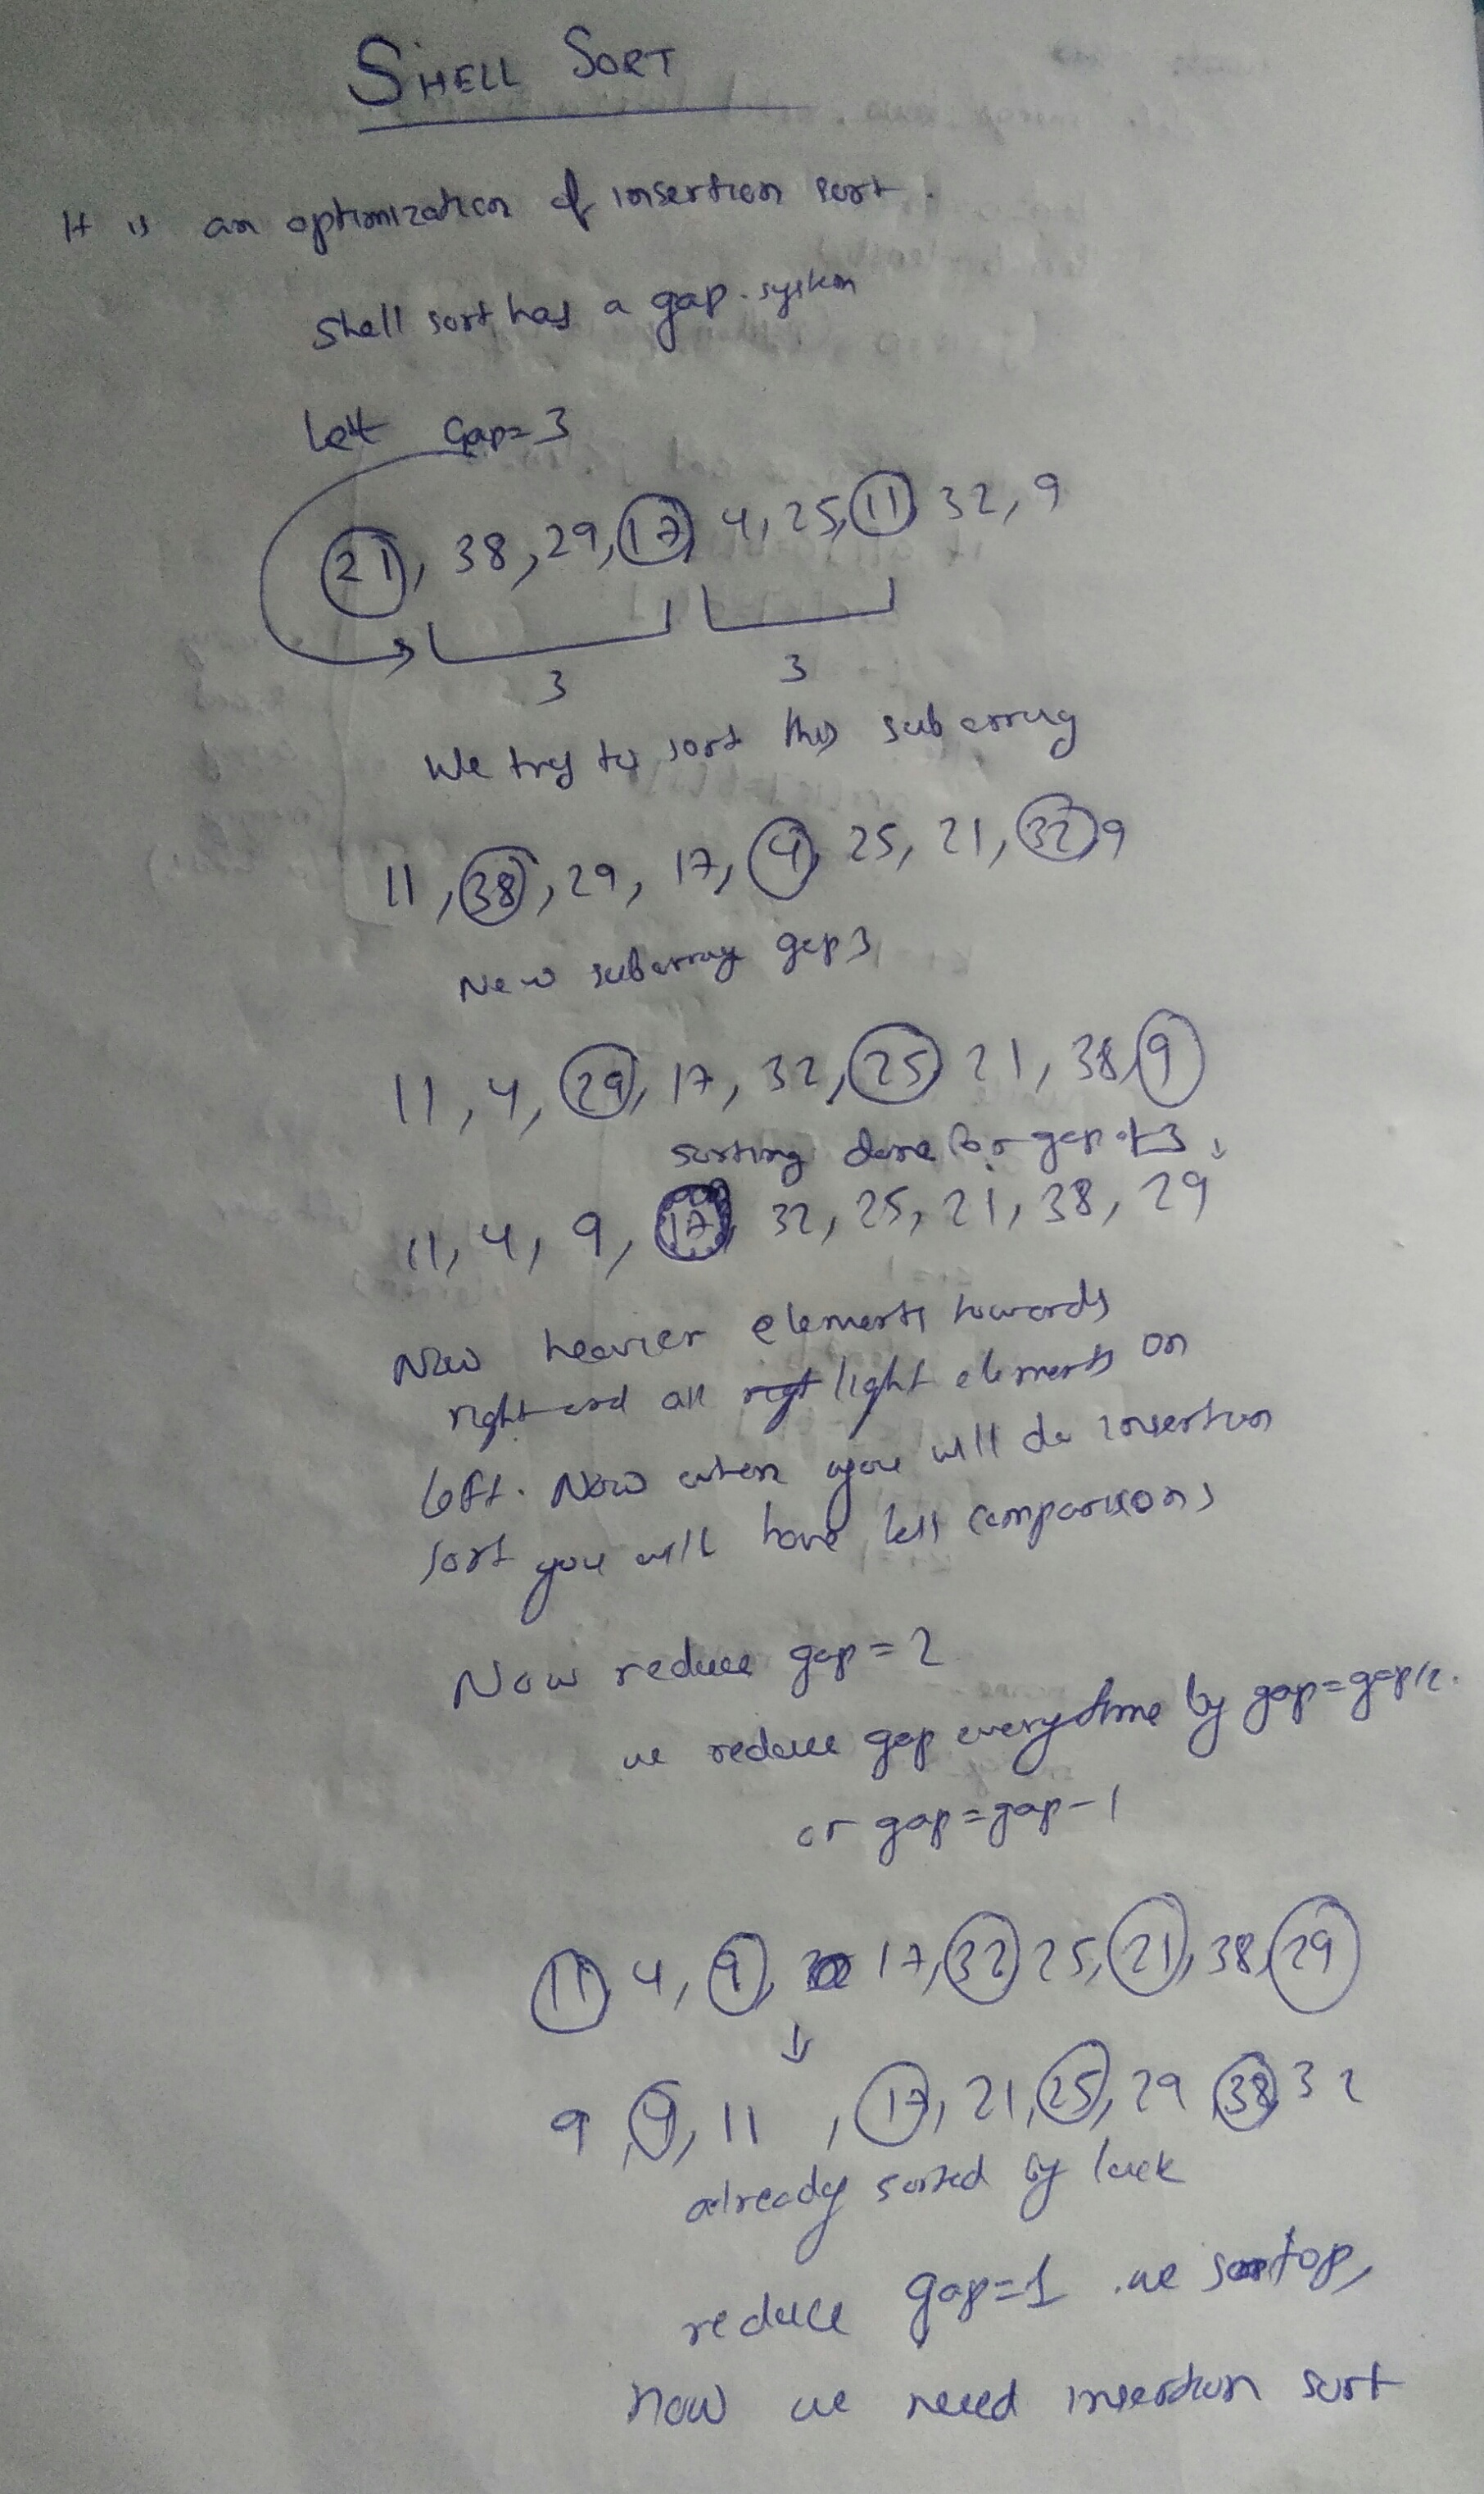 SHELL SORT
It is an optimization of insertion sort.
Shell sort has a gap system
Let Gap=3
21, 38, 29, 17, 4, 25, 11, 32, 9
3 3
We try to sort this subarray
11, 38, 29, 17, 4, 25, 21, 32, 9
New subarray gap 3
11, 4, 29, 17, 32, 25, 21, 38, 9
sorting done for gap of 3
11, 4, 9, 17, 32, 25, 21, 38, 29
Now heavier elements towards
right and all light elements on
left. Now when you will do insertion
sort you will have less comparisons
Now reduce gap = 2
we reduce gap everytime by gap=gap/2.
or gap=gap-1
11, 4, 9, 17, 32, 25, 21, 38, 29
9, 4, 11, 17, 21, 25, 29 38, 32
already sorted by luck
reduce gap=1 we stop,
now we need insertion sort